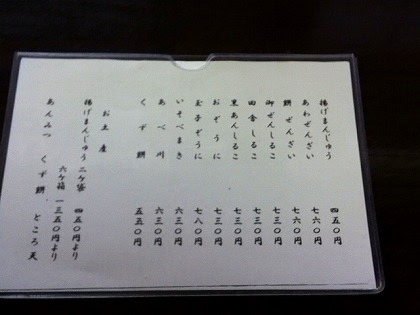 揚げまんじゅう 四五〇円
あわぜんざい 七六〇円
餅ぜんざい 七六〇円
御ぜんしるこ 七三〇円
田舎しるこ 七三〇円
里あんしるこ 七三〇円
おぞうに 七三〇円
玉子ぞうに 七八〇円
いそべまき 六三〇円
あべ川 六三〇円
くず餅 五五〇円
お土産
揚げまんじゅう 二ケ袋 四五〇円より
六ケ箱 一三五〇円より
あんみつ くず餅 ところ天